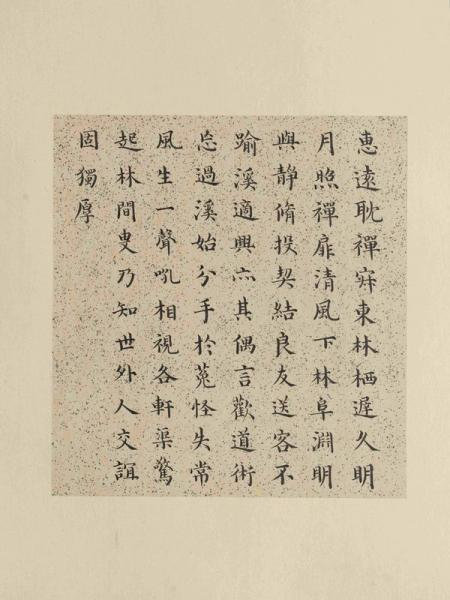 恵遠耽禪寂東林栖遲久明
月照禪扉清風下林阜淵明
與静脩投契結良友送客不
踰溪適興亦其偶言歡道術
忘過溪始分手於菟怪失常
風生一聲吼相視各軒渠驚
起林間叟乃知世外人交誼
固獨厚